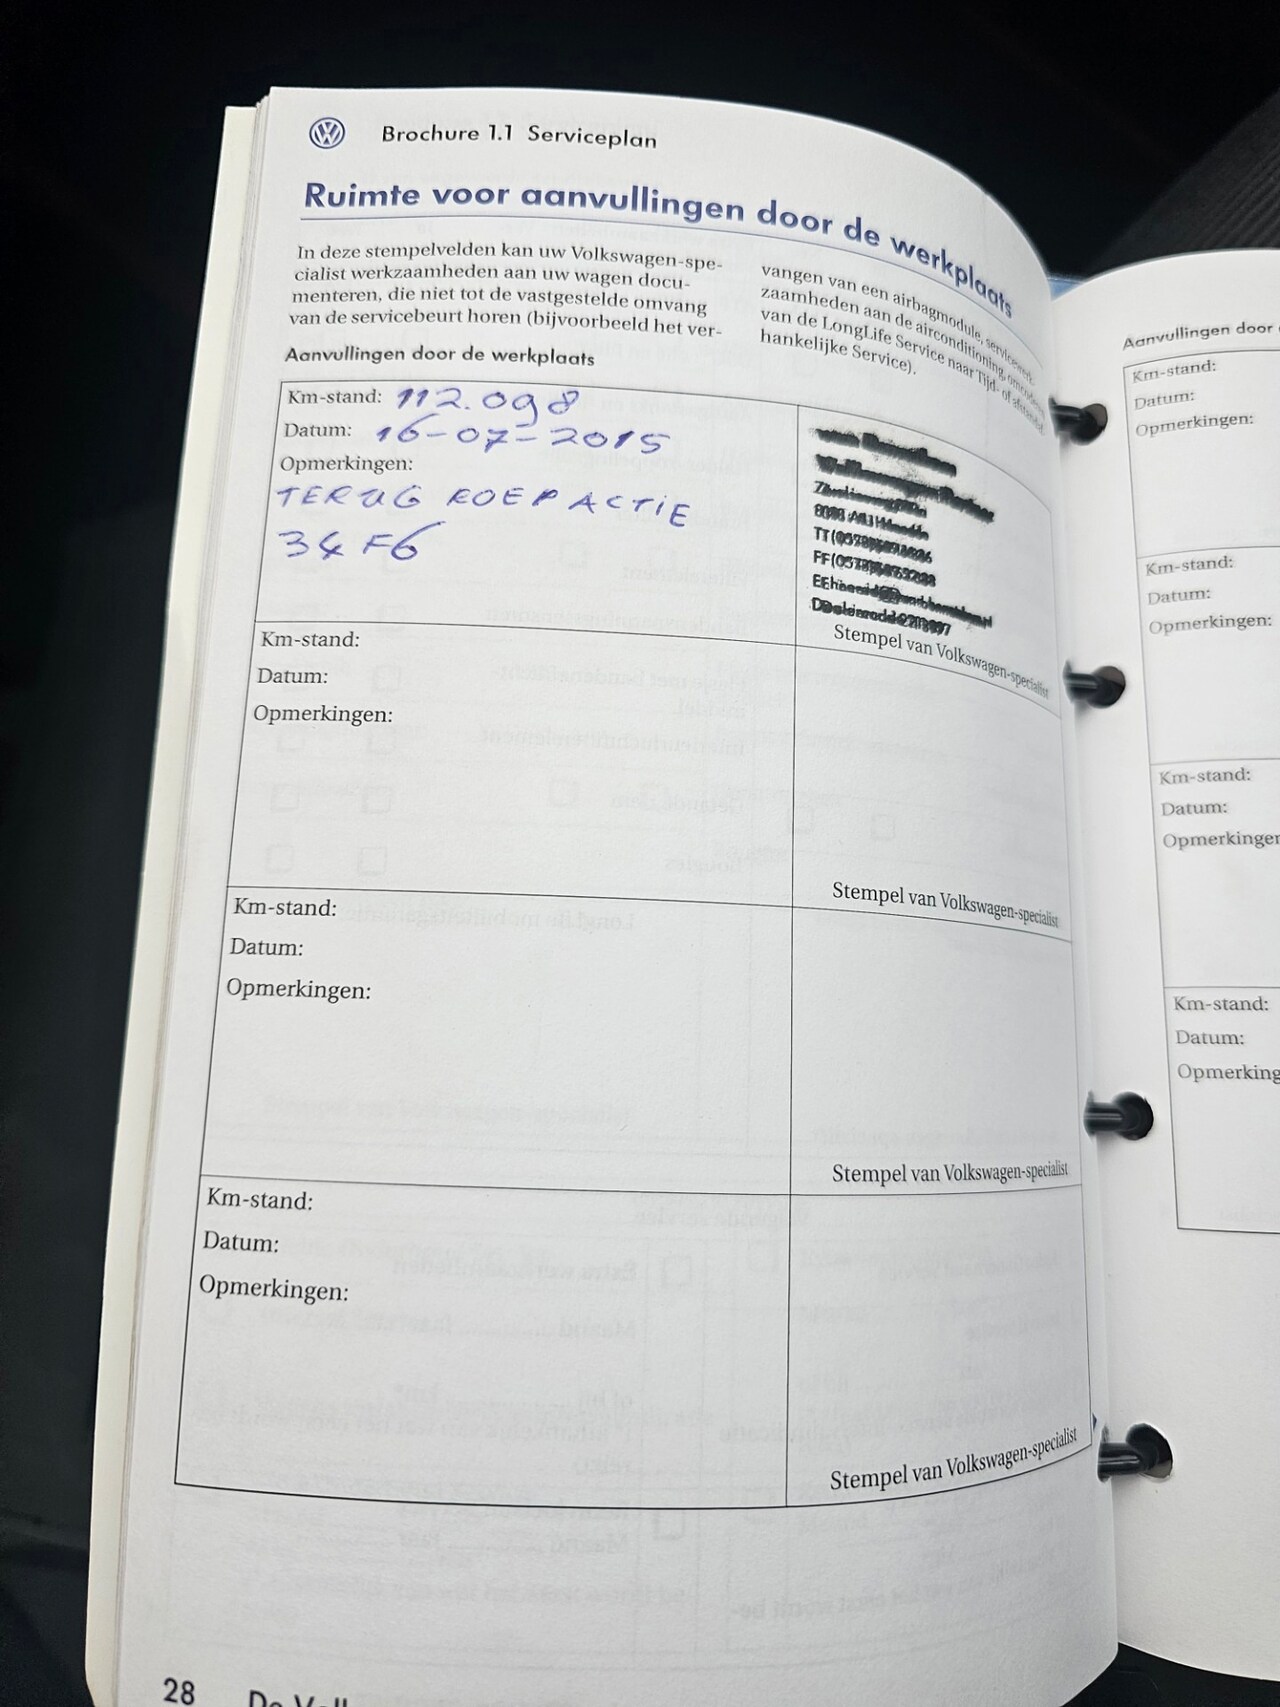 Brochure 1.1 Serviceplan
Ruimte voor aanvullingen door de werkplaats
In deze stempelvelden kan uw Volkswagen-spe-
cialist werkzaamheden aan uw wagen docu-
menteren, die niet tot de vastgestelde omvang
van de servicebeurt horen (bijvoorbeeld het ver-
vangen van een airbagmodule, servicewerk-
zaamheden aan de airconditioning, omcodering
van de LongLife Service naar Tijd- of afstandaf-
hankelijke Service).
Aanvullingen door de werkplaats
Km-stand: 112.098
Datum: 16-07-2015
Opmerkingen:
TERUG ROEP ACTIE
34F6
Stempel van Volkswagen-specialist
Km-stand:
Datum:
Opmerkingen:
Stempel van Volkswagen-specialist
Km-stand:
Datum:
Opmerkingen:
Stempel van Volkswagen-specialist
Km-stand:
Datum:
Opmerkingen:
Stempel van Volkswagen-specialist
28
Aanvullingen door
Km-stand:
Datum:
Opmerkingen:
Km-stand:
Datum:
Opmerkingen:
Km-stand:
Datum:
Opmerkingen
Km-stand:
Datum:
Opmerking